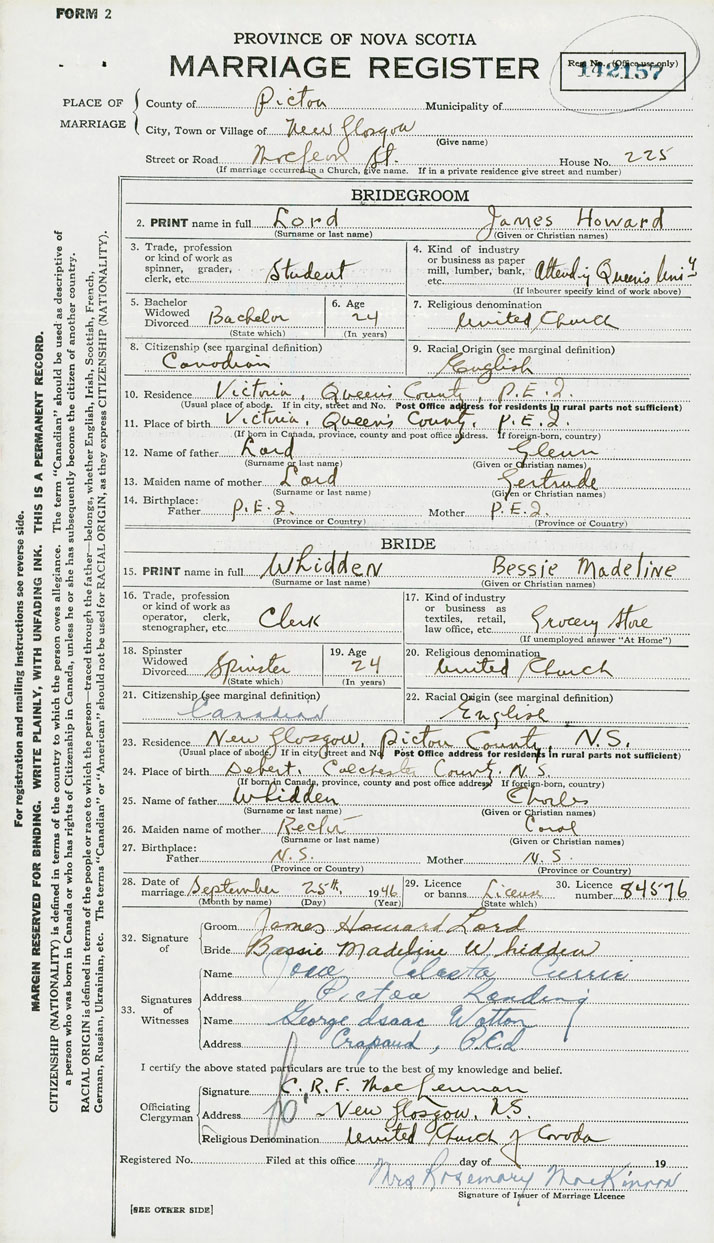 FORM 2
PROVINCE OF NOVA SCOTIA
MARRIAGE REGISTER
Reg. No. (Office use only)
142157
PLACE OF MARRIAGE
County of Pictou Municipality of
City, Town or Village of New Glasgow
(Give name)
Street or Road MacLean St. House No. 225
(If marriage occurred in a Church, give name. If in a private residence give street and number)
BRIDEGROOM
2. PRINT name in full Lord James Howard
(Surname or last name) (Given or Christian names)
3. Trade, profession or kind of work as spinner, grader, clerk, etc. Student
4. Kind of industry or business as paper mill, lumber, bank, etc. Attending Queen's Uni'y
(If labourer specify kind of work above)
5. Bachelor Widowed Divorced Bachelor
(State which)
6. Age 24
(In years)
7. Religious denomination United Church
8. Citizenship (see marginal definition) Canadian
9. Racial Origin (see marginal definition) English
10. Residence Victoria, Queens County, P.E.I.
(Usual place of abode. If in city, street and No. Post Office address for residents in rural parts not sufficient)
11. Place of birth Victoria, Queens County, P.E.I.
(If born in Canada, province, county and post office address. If foreign-born, country)
12. Name of father Lord Glenn
(Surname or last name) (Given or Christian names)
13. Maiden name of mother Lord Gertrude
(Surname or last name) (Given or Christian names)
14. Birthplace: Father P.E.I. Mother P.E.I.
(Province or Country) (Province or Country)
BRIDE
15. PRINT name in full Whidden Bessie Madeline
(Surname or last name) (Given or Christian names)
16. Trade, profession or kind of work as operator, clerk, stenographer, etc. Clerk
17. Kind of industry or business as textiles, retail, law office, etc. Grocery Store
(If unemployed answer "At Home")
18. Spinster Widowed Divorced Spinster
(State which)
19. Age 24
(In years)
20. Religious denomination United Church
21. Citizenship (see marginal definition) Canadian
22. Racial Origin (see marginal definition) English
23. Residence New Glasgow, Pictou County, N.S.
(Usual place of abode. If in city street and No. Post Office address for residents in rural parts not sufficient)
24. Place of birth Debert, Colchester County, N.S.
(If born in Canada, province, county and post office address. If foreign-born, country)
25. Name of father Whidden Charles
(Surname or last name) (Given or Christian names)
26. Maiden name of mother Carol
(Surname or last name) (Given or Christian names)
27. Birthplace: Father N.S. Mother N.S.
(Province or Country) (Province or Country)
28. Date of marriage September 25th, 1946
(Month by name) (Day) (Year)
29. Licence or banns License
(State which)
30. Licence number 84576
32. Signature of
Groom James Howard Lord
Bride Bessie Madeline Whidden
33. Signatures of Witnesses
Name Celesta Currie
Address Pictou Landing
Name George Isaac Wotton
Address Crapaud, P.E.I
I certify the above stated particulars are true to the best of my knowledge and belief.
Officiating Clergyman
Signature C. R. F. MacLennan
Address New Glasgow, N.S.
Religious Denomination United Church of Canada
Registered No. Filed at this office day of 19
Mrs Rosemary MacKinnon
Signature of Issuer of Marriage Licence
[SEE OTHER SIDE]
For registration and mailing instructions see reverse side.
MARGIN RESERVED FOR BINDING. WRITE PLAINLY, WITH UNFADING INK. THIS IS A PERMANENT RECORD.
CITIZENSHIP (NATIONALITY) is defined in terms of the country to which the person owes allegiance. The term "Canadian" should be used as descriptive of
a person who was born in Canada or who has rights of Citizenship in Canada, unless he or she has subsequently become the citizen of another country.
RACIAL ORIGIN is defined in terms of the people or race to which the person—traced through the father—belongs, whether English, Irish, Scottish, French,
German, Russian, Ukrainian, etc. The terms "Canadian" or "American" should not be used for RACIAL ORIGIN, as they express CITIZENSHIP (NATIONALITY).